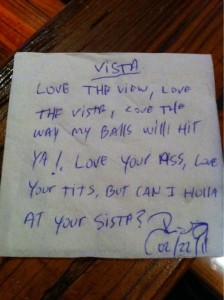 VISTA
LOVE THE VIEW, LOVE
THE VISTA, LOVE THE
WAY MY BALLS WILL HIT
YA! LOVE YOUR ASS, LOVE
YOUR TITS, BUT CAN I HOLLA
AT YOUR SISTA?
02/22/11